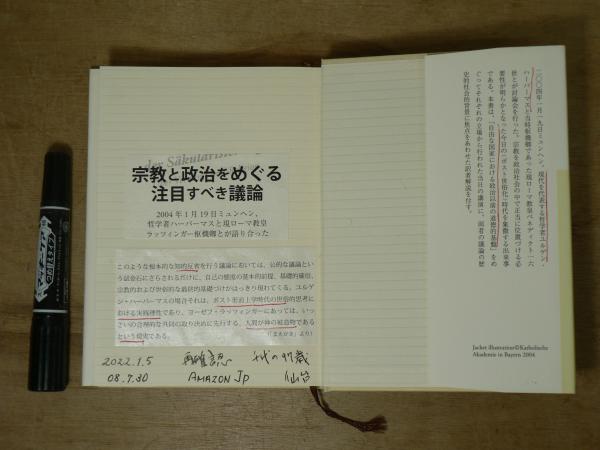 der Säkularisierung
宗教と政治をめぐる
注目すべき議論
2004年1月19日ミュンヘン、
哲学者ハーバーマスと現ローマ教皇
ラッツィンガー枢機卿とが語り合った
このような根本的な知的反省を行う議論においては、公的な議論とい
う試金石にさらされるだけに、自己の態度の基本的前提、基礎的確信、
宗教的および世俗的な最終的基礎づけがはっきり現れてくる。ユルゲ
ン・ハーバーマスの場合それは、ポスト形而上学時代の世俗的思考に
おける実践理性であり、ヨーゼフ・ラッツィンガーにあっては、いっ
さいの合理的な共同の取り決めに先行する、人間が神の被造物である
という現実である。
(「まえがき」より)
2022.1.5 再確認 七代の97歳
08.7.30 AMAZON JP 仙台
二〇〇四年一月一九日ミュンヘン、現代を代表する哲学者ユルゲン・
ハーバーマスと当時枢機卿であった現ローマ教皇ベネディクト一六
世とが討論会を行った。宗教を政治社会の中で正当に位置づける必
要性が明らかとなった今日の「ポスト世俗化」時代を象徴する出来事
である。本書は、「自由な国家における政治以前の道徳的基盤」をめ
ぐってそれぞれの立場から行われた当日の講演に、両者の議論の歴
史的社会的背景に焦点をあわせた訳者解説を付す。
Jacket illustration©Katholische
Akademie in Bayern 2004